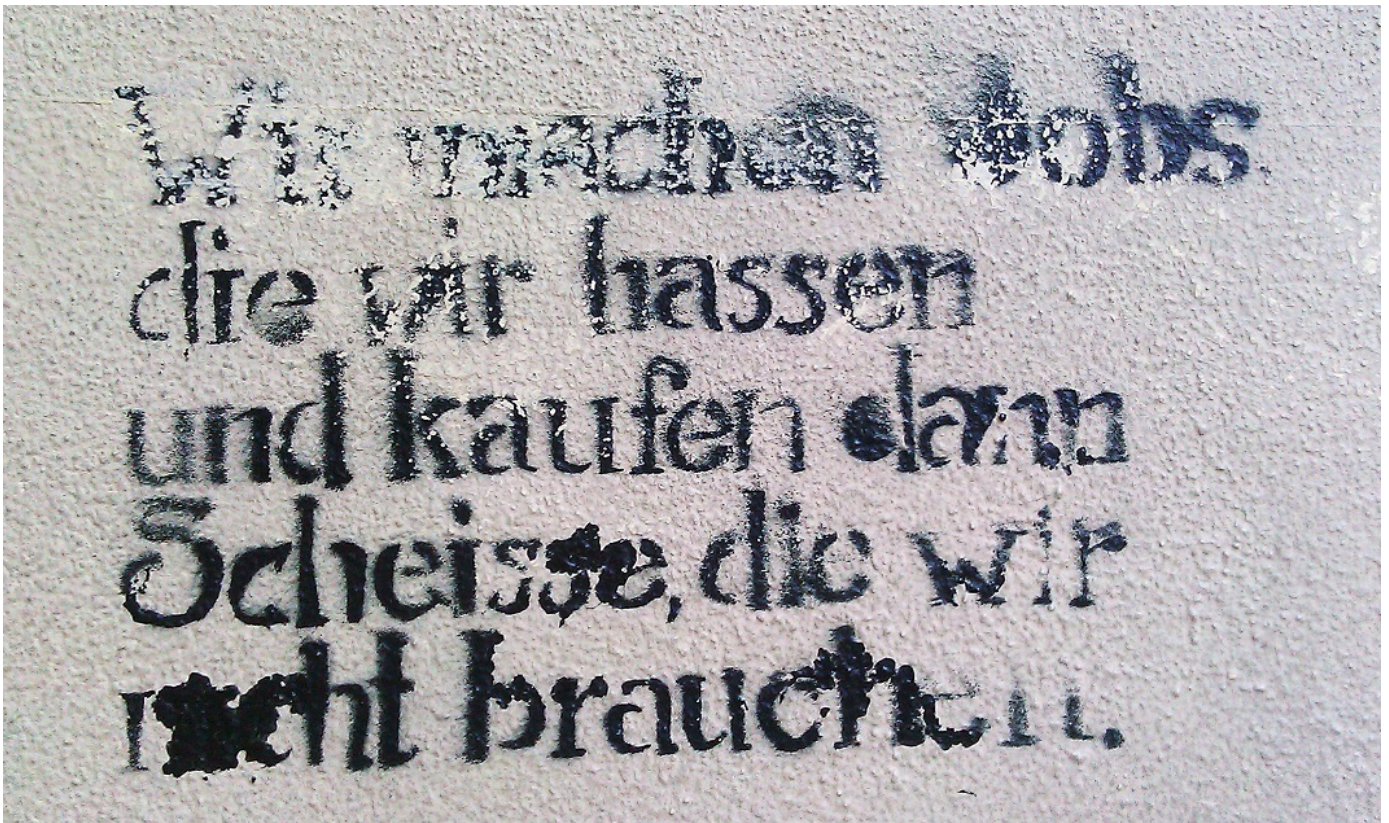 Wir machen Jobs.
die wir hassen
und kaufen dann
Scheisse, die wir
nicht brauchen.